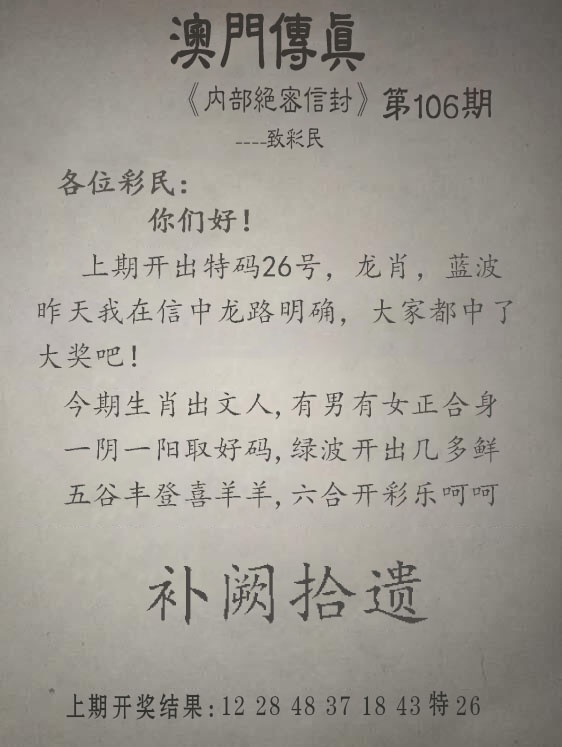 澳門傳眞
《内部絕密信封》第106期
----致彩民
各位彩民：
你们好！
上期开出特码26号，龙肖，蓝波
昨天我在信中龙路明确，大家都中了
大奖吧！
今期生肖出文人,有男有女正合身
一阴一阳取好码,绿波开出几多鲜
五谷丰登喜羊羊,六合开彩乐呵呵
补阙拾遗
上期开奖结果:12 28 48 37 18 43 特 26